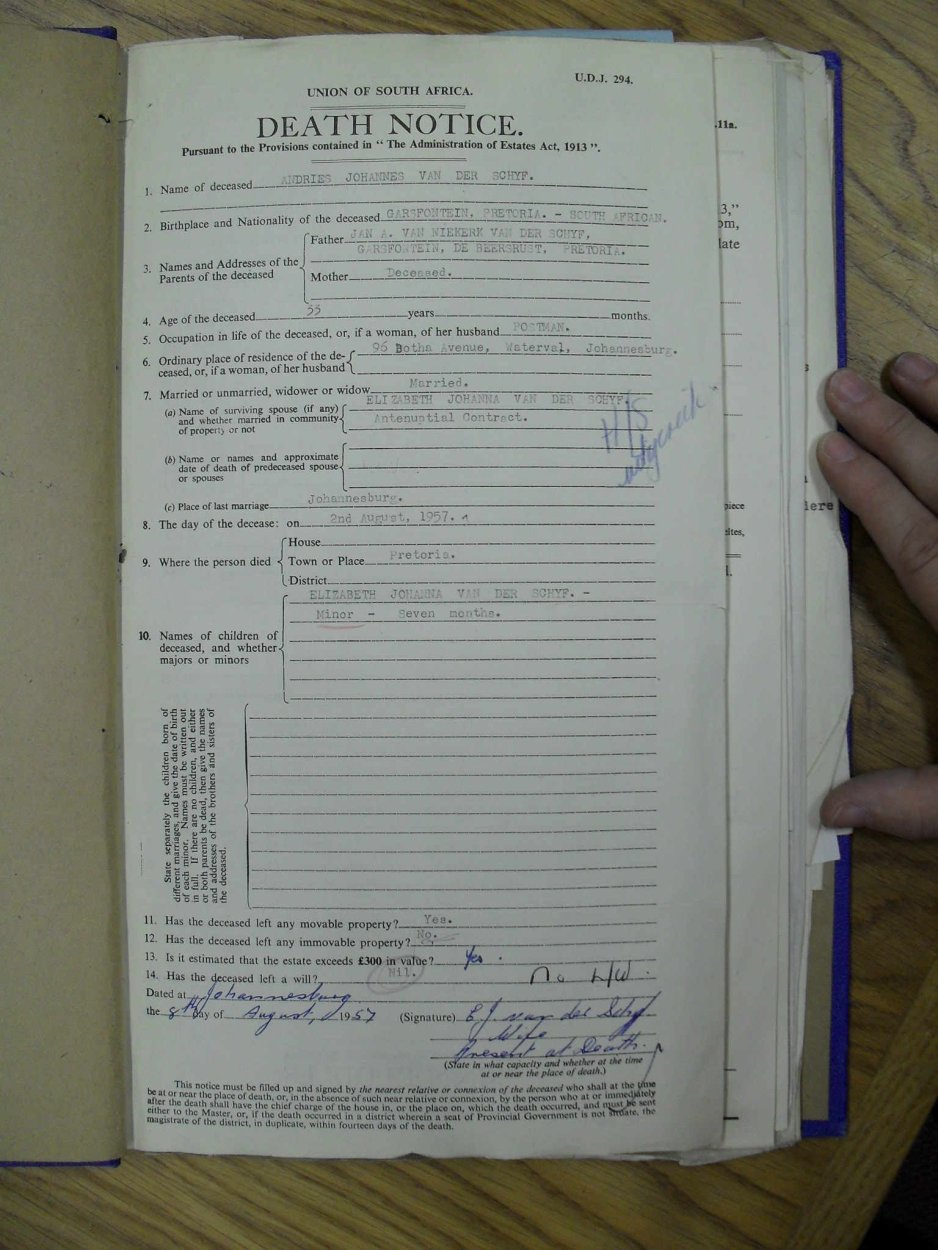 U.D.J. 294.
UNION OF SOUTH AFRICA.
DEATH NOTICE.
Pursuant to the Provisions contained in “ The Administration of Estates Act, 1913 ”.
1. Name of deceased ANDRIES JOHANNES VAN DER SCHYF.
2. Birthplace and Nationality of the deceased GARSFONTEIN, PRETORIA. - SOUTH AFRICAN.
3. Names and Addresses of the Parents of the deceased
Father JAN A. VAN NIEKERK VAN DER SCHYF,
GARSFONTEIN, DE BEERSRUST, PRETORIA.
Mother Deceased.
4. Age of the deceased 33 years months.
5. Occupation in life of the deceased, or, if a woman, of her husband POSTMAN.
6. Ordinary place of residence of the de-
ceased, or, if a woman, of her husband
96 Botha Avenue, Waterval, Johannesburg.
7. Married or unmarried, widower or widow Married.
(a) Name of surviving spouse (if any)
and whether married in community
of property or not
ELIZABETH JOHANNA VAN DER SCHYF.
Antenuptial Contract.
H/S
(b) Name or names and approximate
date of death of predeceased spouse
or spouses
(c) Place of last marriage Johannesburg.
8. The day of the decease: on 2nd August, 1957.
9. Where the person died
House
Town or Place Pretoria.
District
10. Names of children of
deceased, and whether
majors or minors
ELIZABETH JOHANNA VAN DER SCHYF. -
Minor - Seven months.
State separately the children born of
different marriages, and give the date of birth
of each minor. Names must be written out
in full. If there are no children, and either
or both parents be dead, then give the names
and addresses of the brothers and sisters of
the deceased.
11. Has the deceased left any movable property? Yes.
12. Has the deceased left any immovable property? No.
13. Is it estimated that the estate exceeds £300 in value? Yes.
14. Has the deceased left a will? Nil. no L/W.
Dated at Johannesburg
the 8th day of August, 1957 (Signature) E J. van der Schyf
Wife
Present at Death.
(State in what capacity and whether at the time
at or near the place of death.)
This notice must be filled up and signed by the nearest relative or connexion of the deceased who shall at the time
be at or near the place of death, or, in the absence of such near relative or connexion, by the person who at or immediately
after the death shall have the chief charge of the house in, or the place on, which the death occurred, and must be sent
either to the Master, or, if the death occurred in a district wherein a seat of Provincial Government is not situate, the
magistrate of the district, in duplicate, within fourteen days of the death.
.11a.
3,”
om,
late
piece
ites,
here